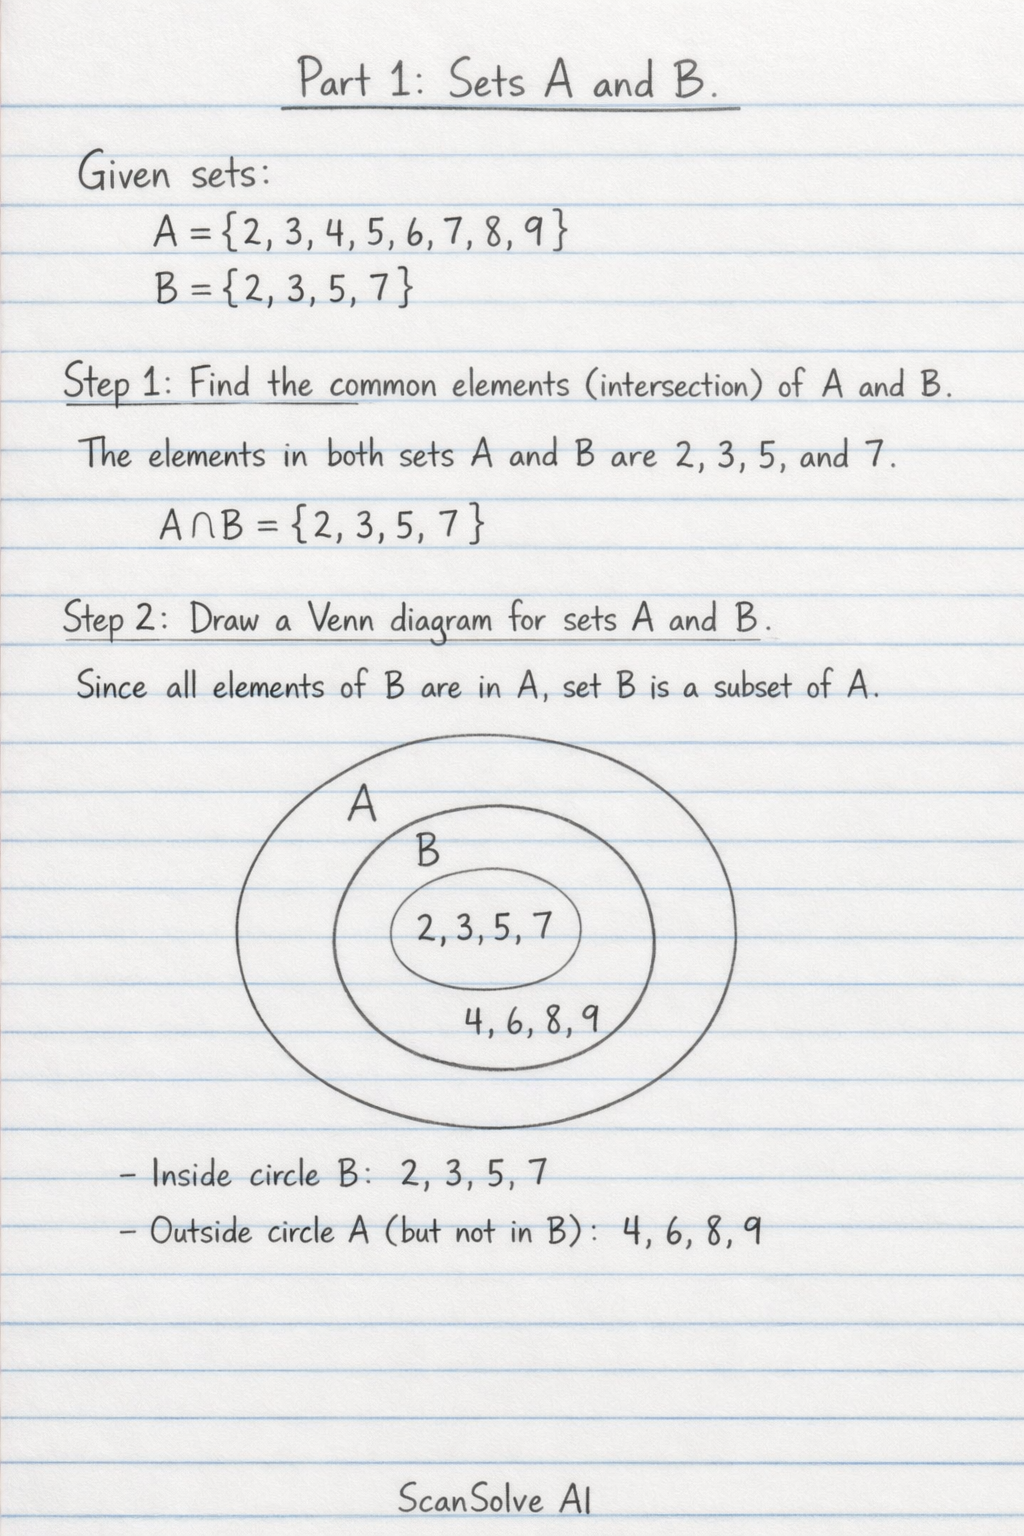 Part 1: Sets A and B.
Given sets:
A = {2, 3, 4, 5, 6, 7, 8, 9}
B = {2, 3, 5, 7}
Step 1: Find the common elements (intersection) of A and B.
The elements in both sets A and B are 2, 3, 5, and 7.
A∩B = {2, 3, 5, 7}
Step 2: Draw a Venn diagram for sets A and B.
Since all elements of B are in A, set B is a subset of A.
A
B
2, 3, 5, 7
4, 6, 8, 9
– Inside circle B: 2, 3, 5, 7
– Outside circle A (but not in B): 4, 6, 8, 9
ScanSolve AI